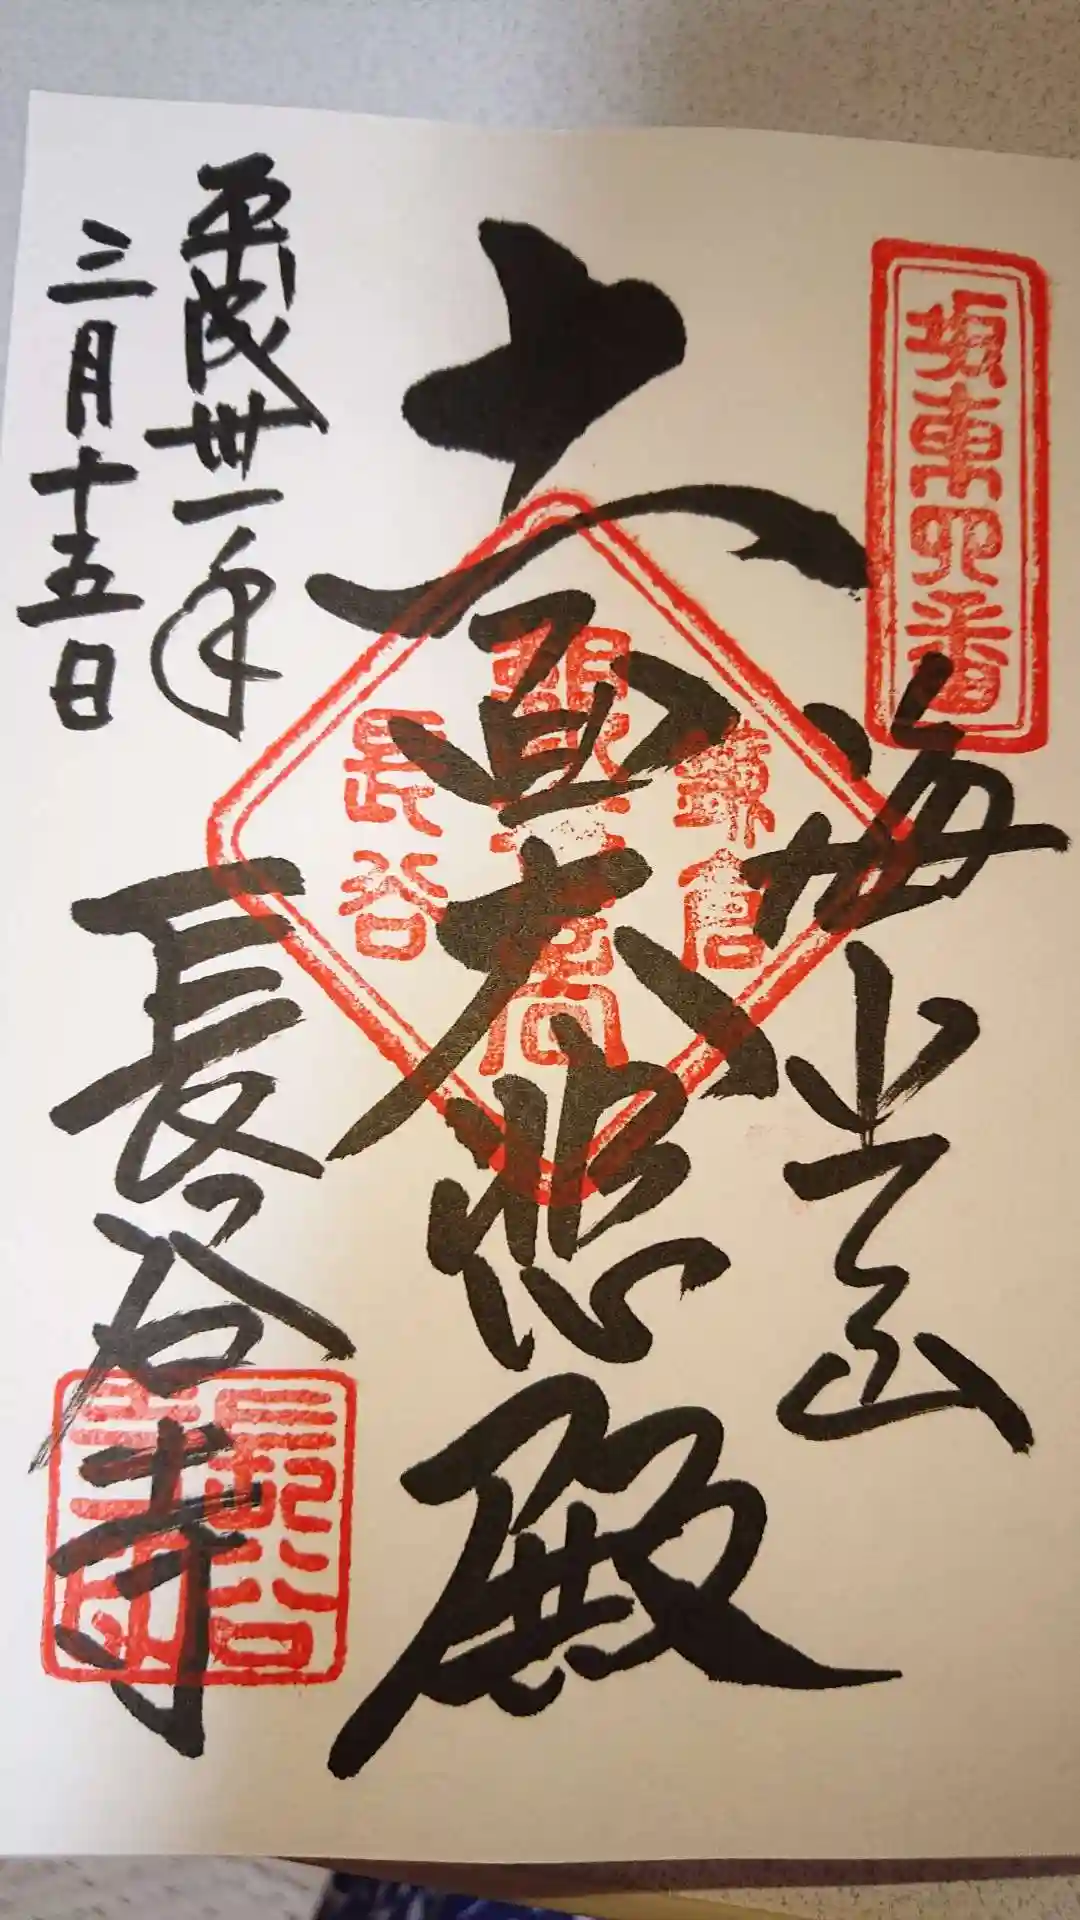 坂東四番
海光山
十一面大悲殿
鎌倉
長谷
平成卅一年
三月十五日
長谷寺
長谷
寺印